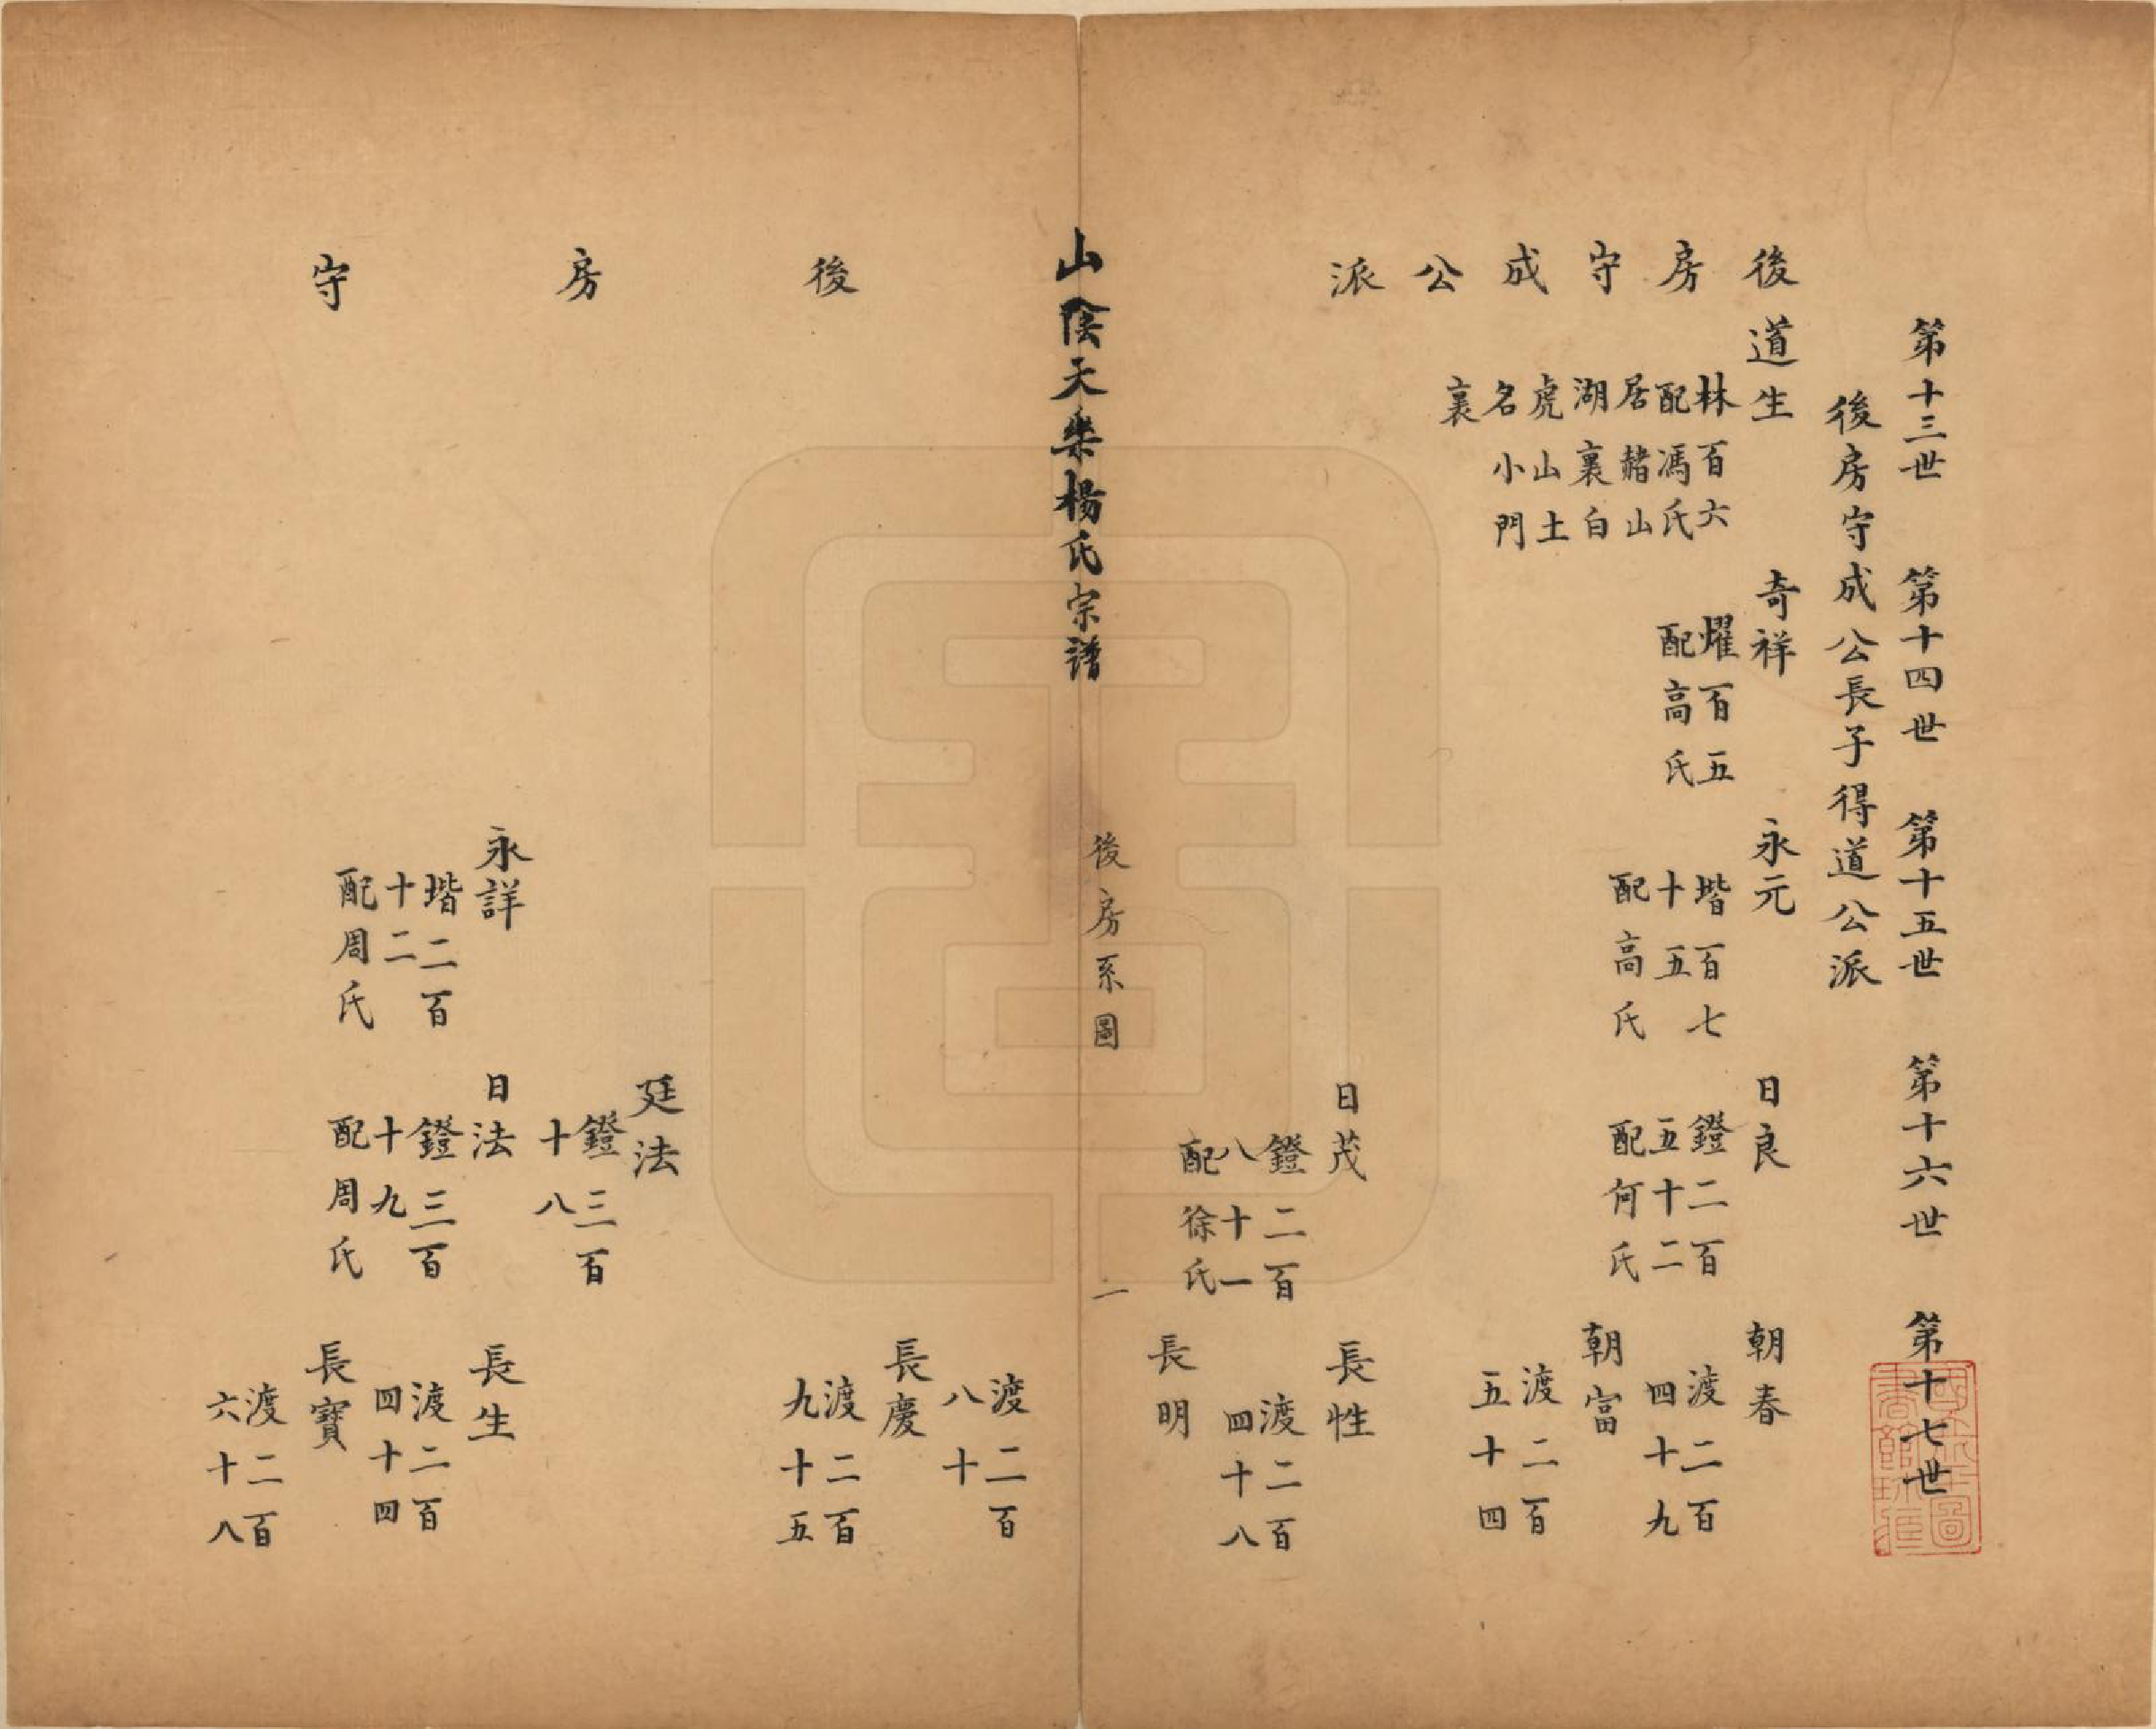 第十三世　第十四世　第十五世　第十六世　第十七世
後房守成公長子得道公派
後房守成公派
道生
林百六
配馮氏
居赭山
湖裏白
虎山土
名小門
裏
奇祥
燿百五
配高氏
永元
堦百七
十五
配高氏
日良
鐙二百
五十二
配何氏
朝春
渡二百
四十九
朝富
渡二百
五十四
日茂
鐙二百
八十一
配徐氏
長性
渡二百
四十八
長明
山陰天樂楊氏宗譜
後房系圖
一
後房守
渡二百
八十
長慶
渡二百
九十五
廷法
鐙三百
十八
永詳
堦二百
十二
配周氏
日法
鐙三百
十九
配周氏
長生
渡二百
四十四
長寶
渡二百
六十八